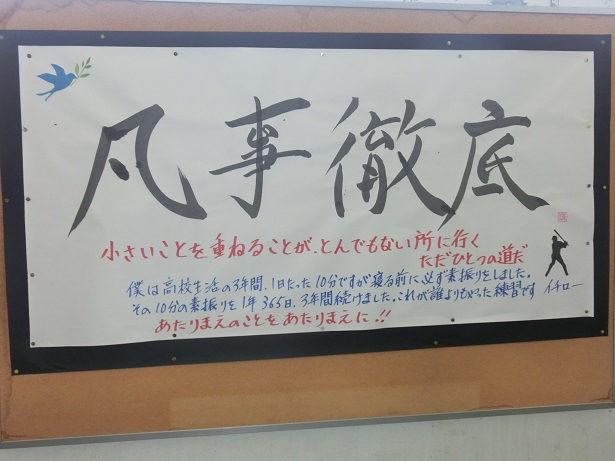 凡事徹底
小さいことを重ねることが、とんでもない所に行く
ただひとつの道だ
僕は高校生活の3年間、1日たった10分ですが寝る前に必ず素振りをしました。
その10分の素振りを1年365日、3年間続けました。これが誰よりもやった練習です イチロー
あたりまえのことをあたりまえに!!